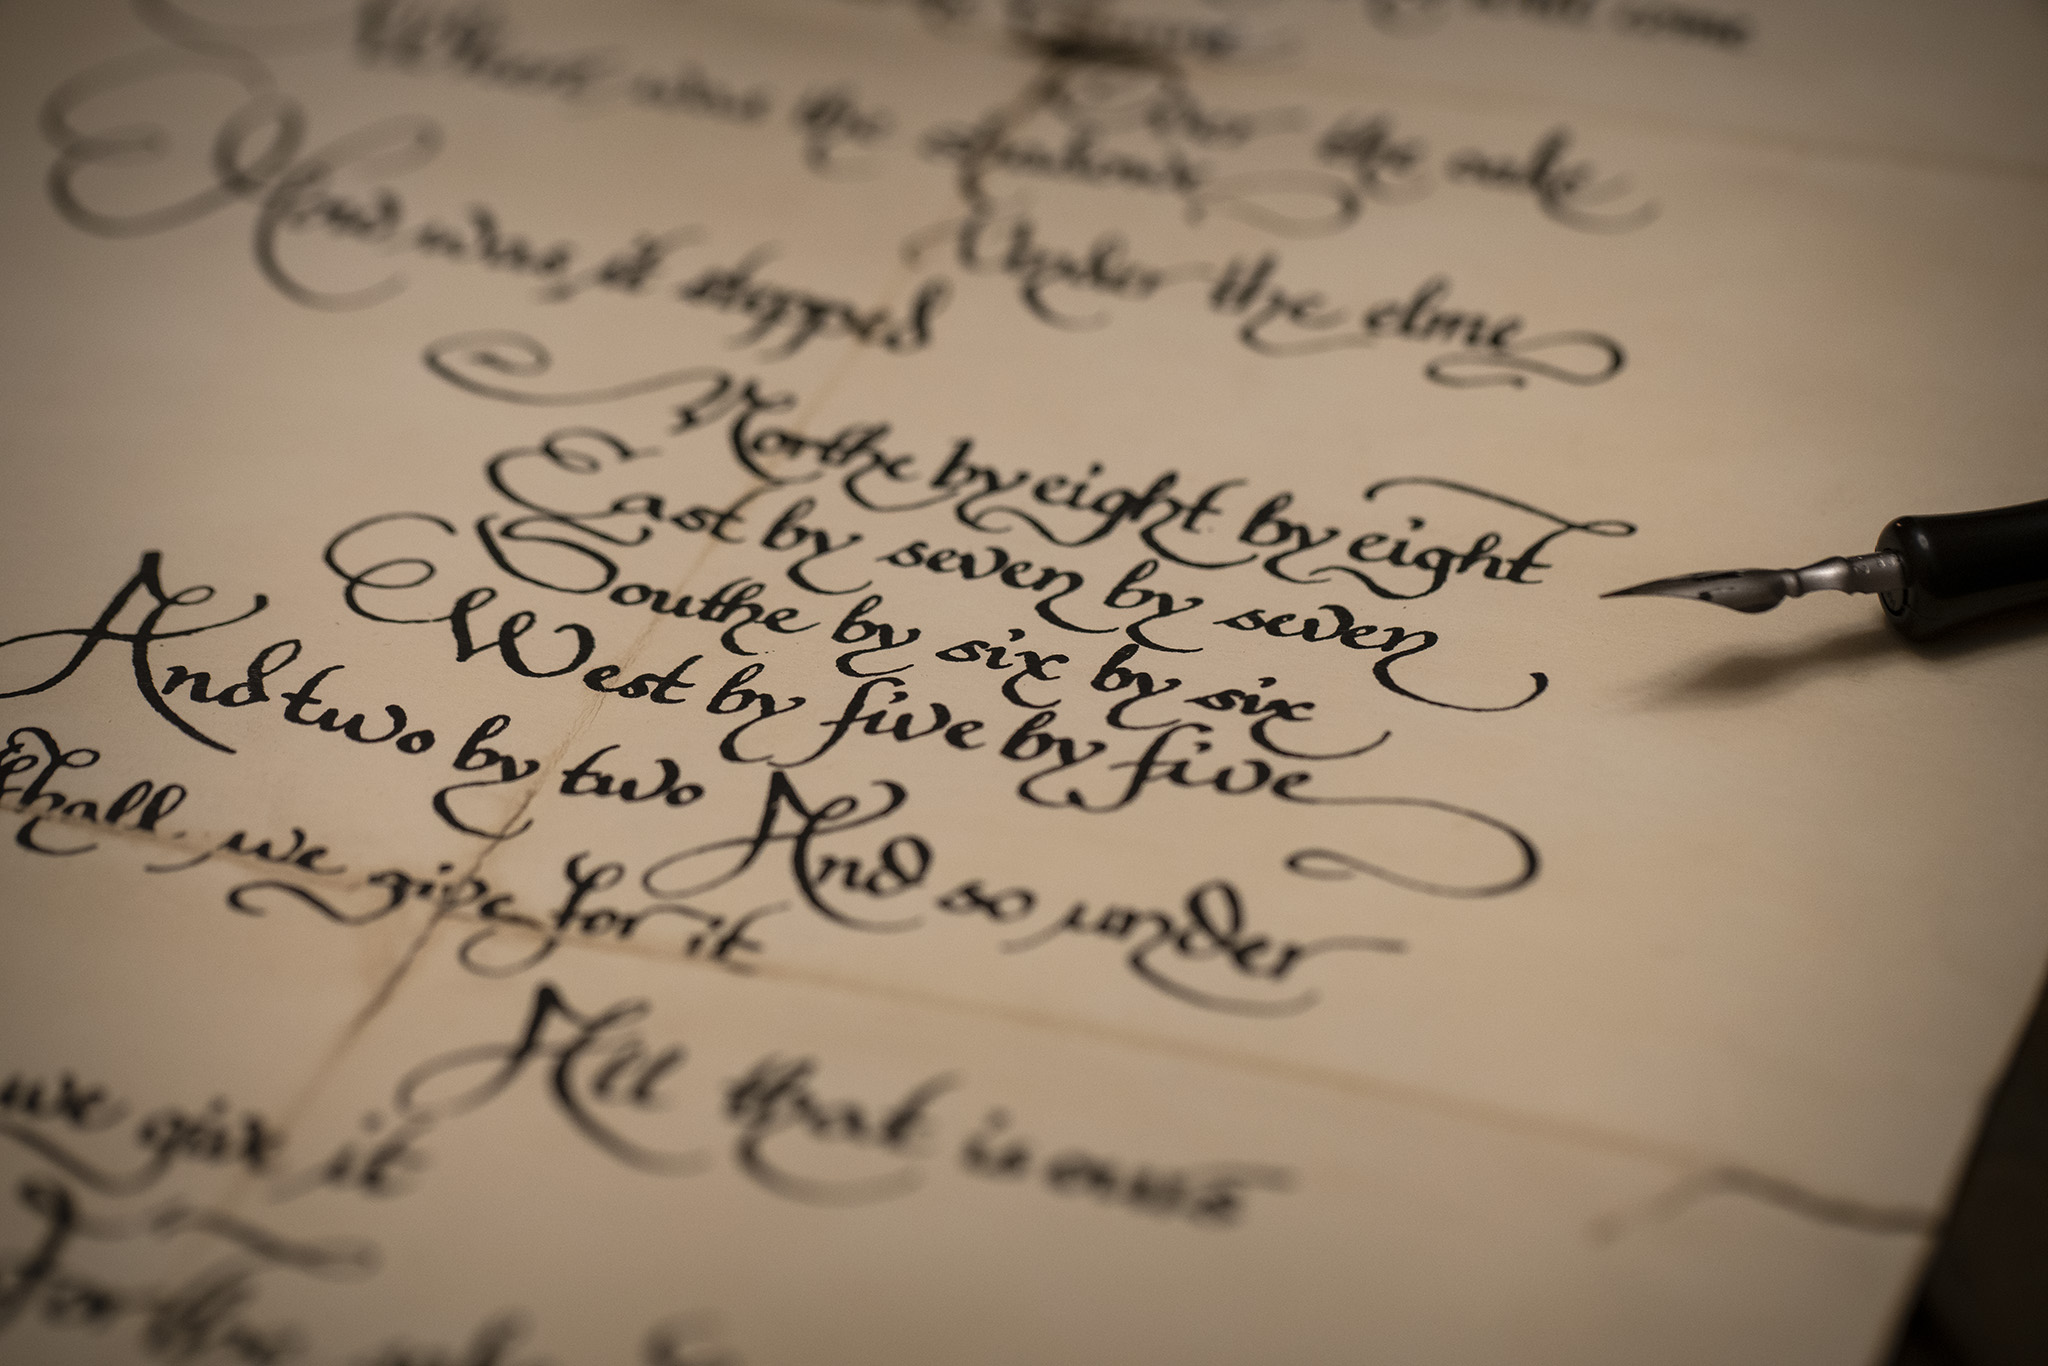 Where was the shadow
Over the oake
Under the elme
How was it stepped
Northe by eight by eight
East by seven by seven
Southe by six by six
West by five by five
And two by two
And so under
Shall we give for it
All that is ours
we give it
For the